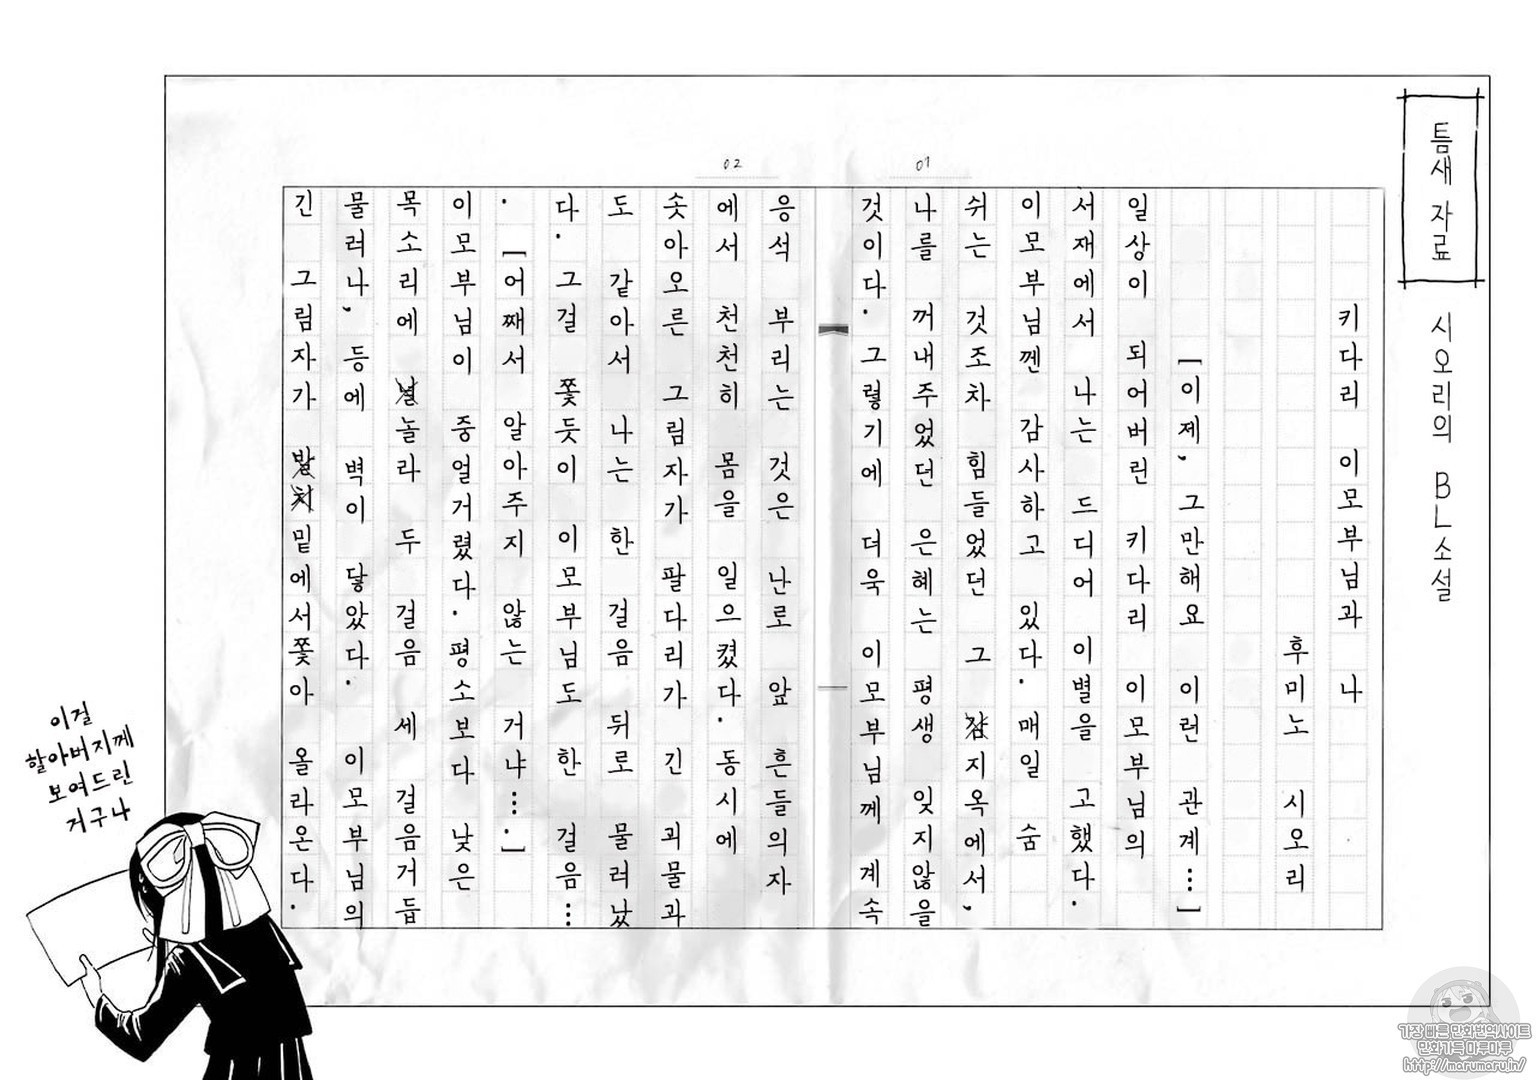 틈새 자료
시오리의 BL소설
01
키다리 이모부님과 나
후미노 시오리
[이제, 그만해요 이런 관계…]
일상이 되어버린 키다리 이모부님의
서재에서 나는 드디어 이별을 고했다.
이모부님껜 감사하고 있다. 매일 숨
쉬는 것조차 힘들었던 그 지옥에서,
나를 꺼내주었던 은혜는 평생 잊지않을
것이다. 그렇기에 더욱 이모부님께 계속
02
응석 부리는 것은 난로 앞 흔들의자
에서 천천히 몸을 일으켰다. 동시에
솟아오른 그림자가 팔다리가 긴 괴물과
도 같아서 나는 한 걸음 뒤로 물러났
다. 그걸 쫓듯이 이모부님도 한 걸음…
. [어째서 알아주지 않는 거냐….]
이모부님이 중얼거렸다. 평소보다 낮은
목소리에 놀라 두 걸음 세 걸음거듭
물러나, 등에 벽이 닿았다. 이모부님의
긴 그림자가 발치밑에서쫓아 올라온다.
이걸
할아버지께
보여드린
거구나
가장 빠른 만화번역사이트
만화가득 마루마루
http://marumaru.in/